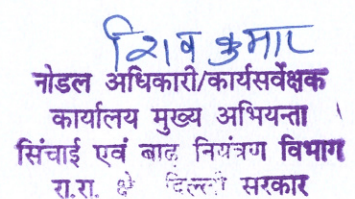 शिव कुमार
नोडल अधिकारी/कार्यसर्वेक्षक
कार्यालय मुख्य अभियन्ता
सिंचाई एवं बाढ़ नियंत्रण विभाग
रा.रा. क्षे दिल्ली सरकार